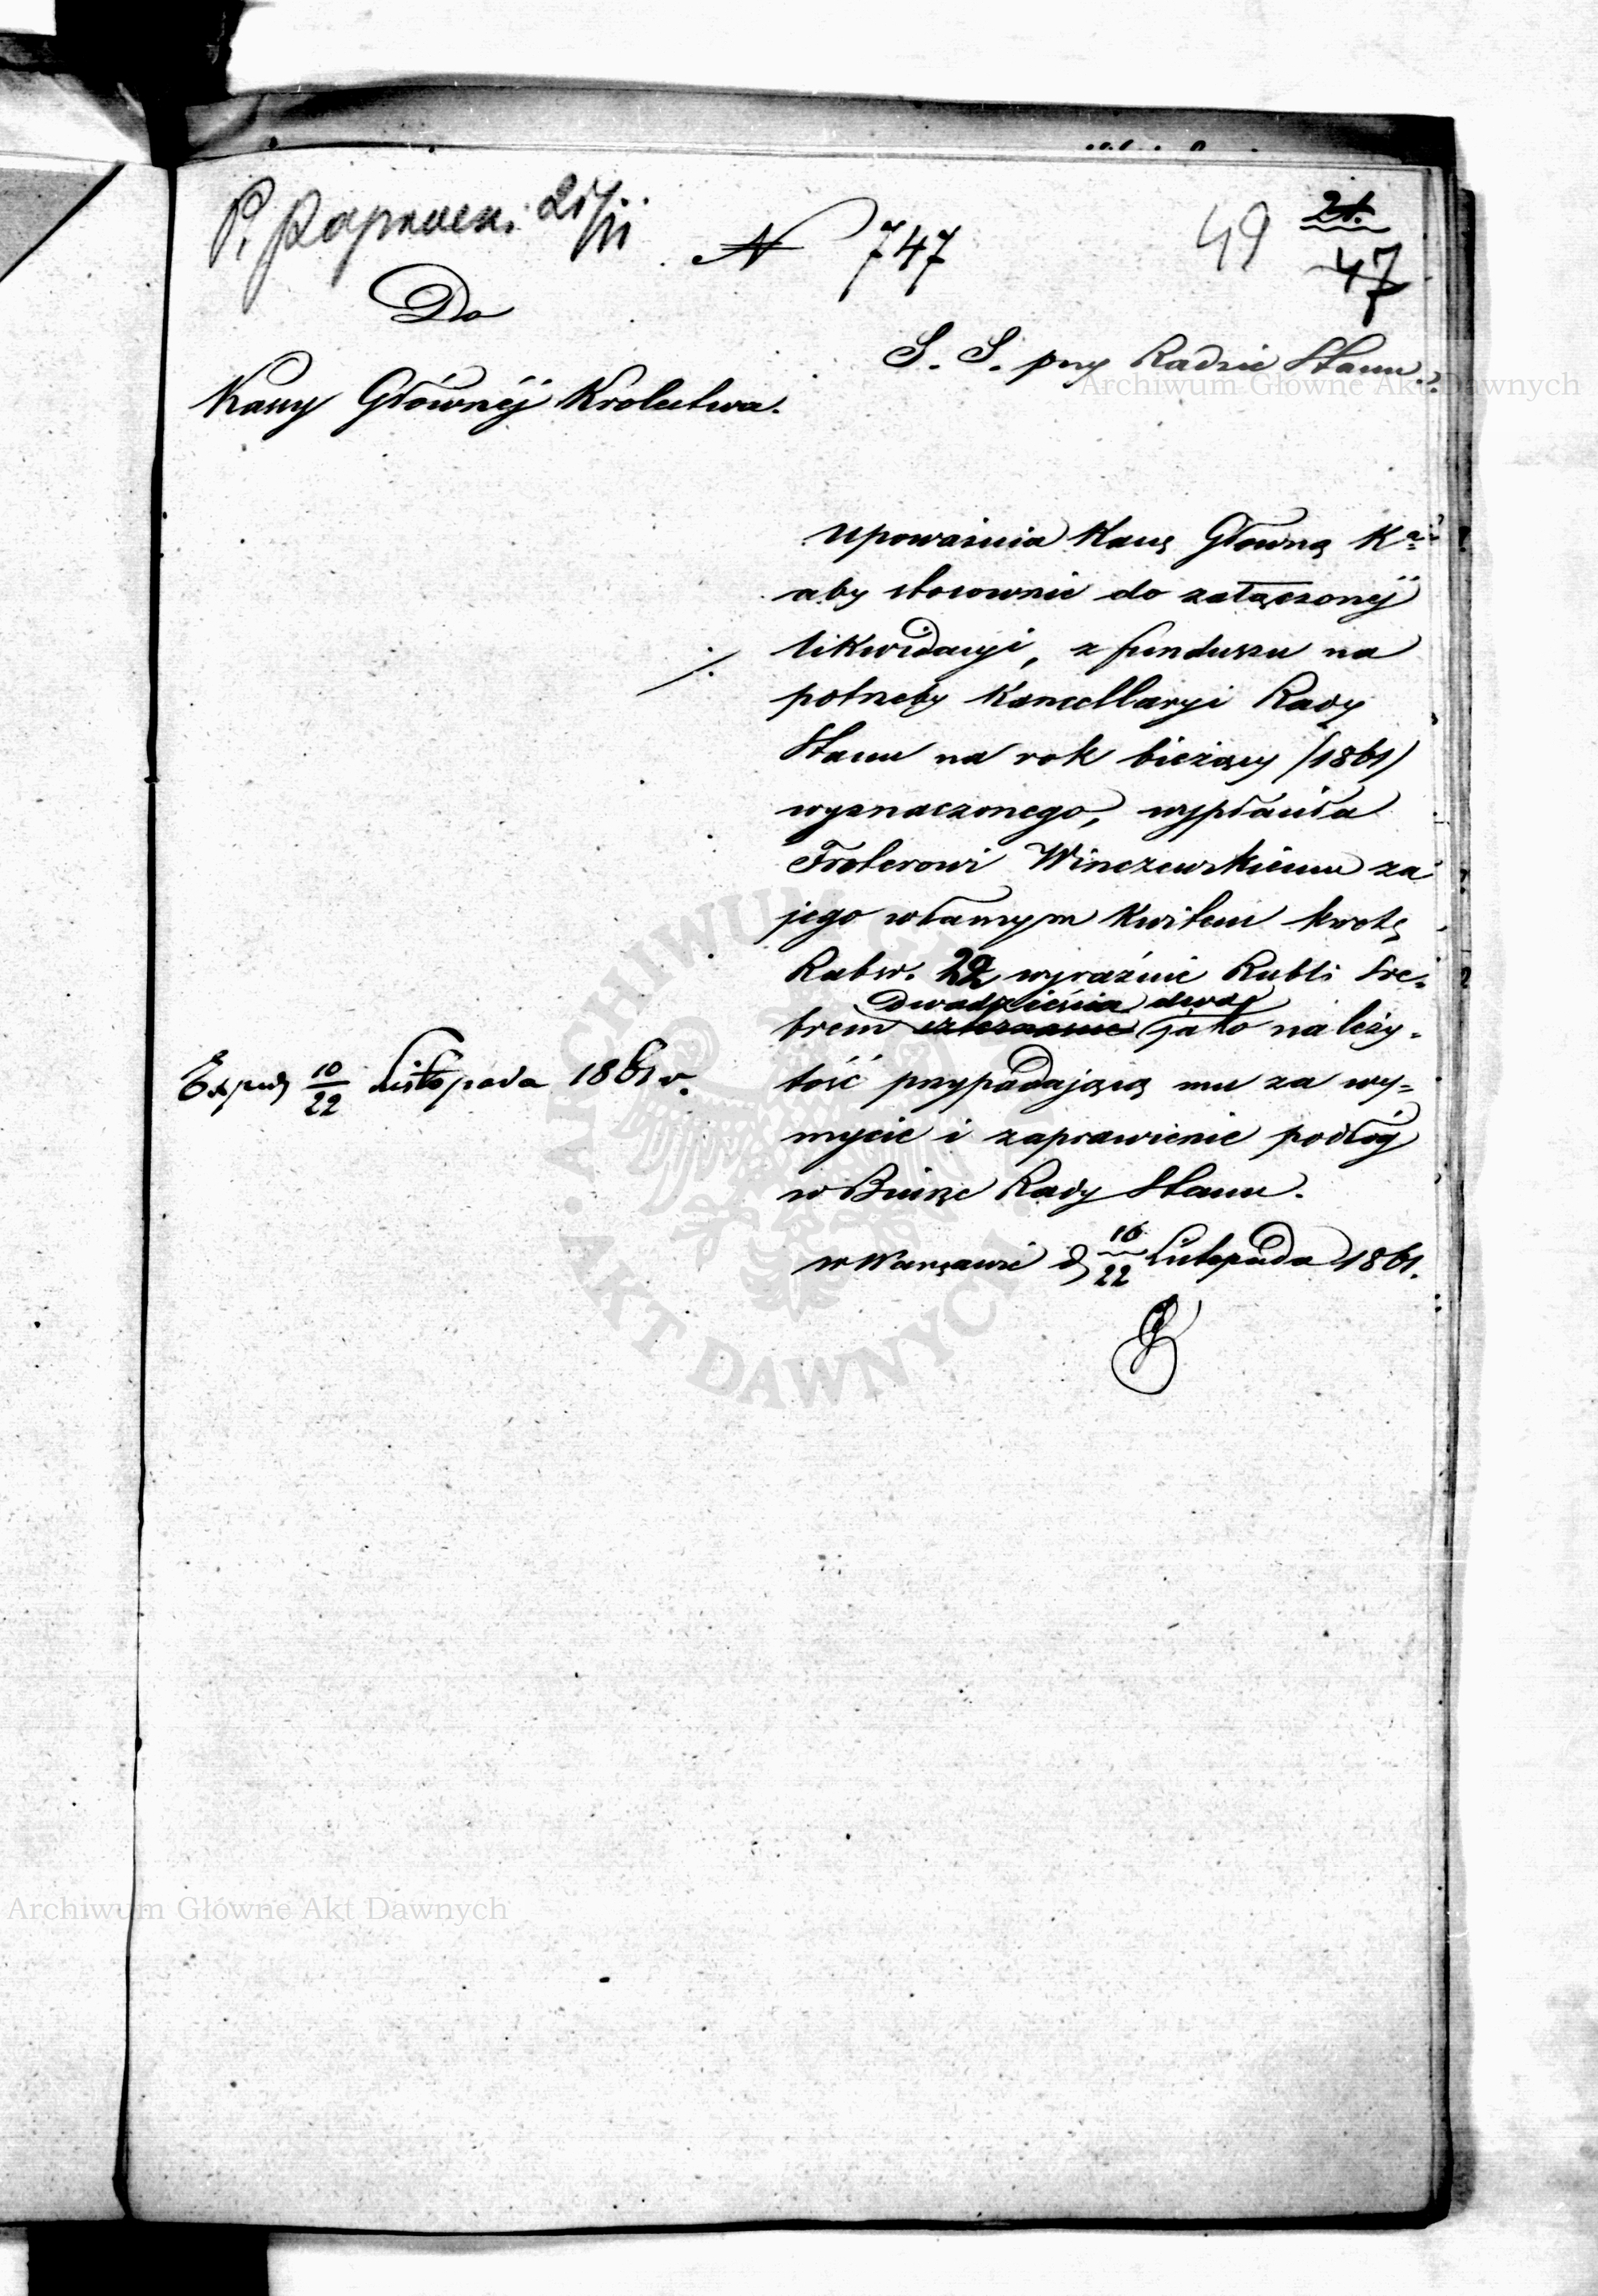 P. 21/11
N 747
49
21.
47
Do
Kassy Głównéj Królestwa.
S. S. przy Radzie Stanu.
Upoważnia Kassę Główną Kª
aby stosownie do załączonéj
likwidacyi, z funduszu na
potrzeby Kancellaryi Rady
Stanu na rok bieżący (1861)
wyznaczonego, wypłaciła
Froterowi Winczewskiemu za
jego własnym kwitem kwotę
Rubsr. 22 wyraźnie Rubli Sre-
Dwadzieścia dwa
brem czternaście jako należy-
tość przypadającą mu za wy-
mycie i zaprawienie podłóg
w Biurze Rady Stanu.
w Warszawie d 10/22 Listopada 1861.
Exped 10/22 Listopada 1861 r.
Archiwum Główne Akt Dawnych
ARCHIWUM GŁÓWNE AKT DAWNYCH
Archiwum Główne Akt Dawnych